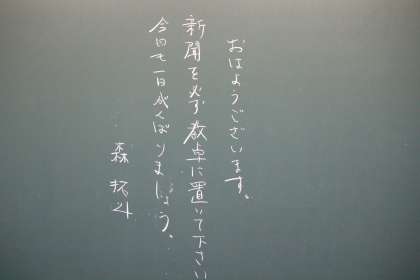 おはようございます。
新聞を必ず教卓に置いて下さい
今日も一日がんばりましょう。
森 拓斗